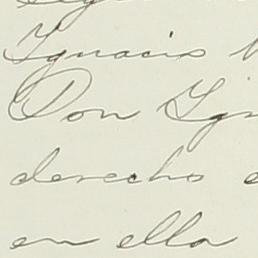 Ignacio
Don
derecho
en ella